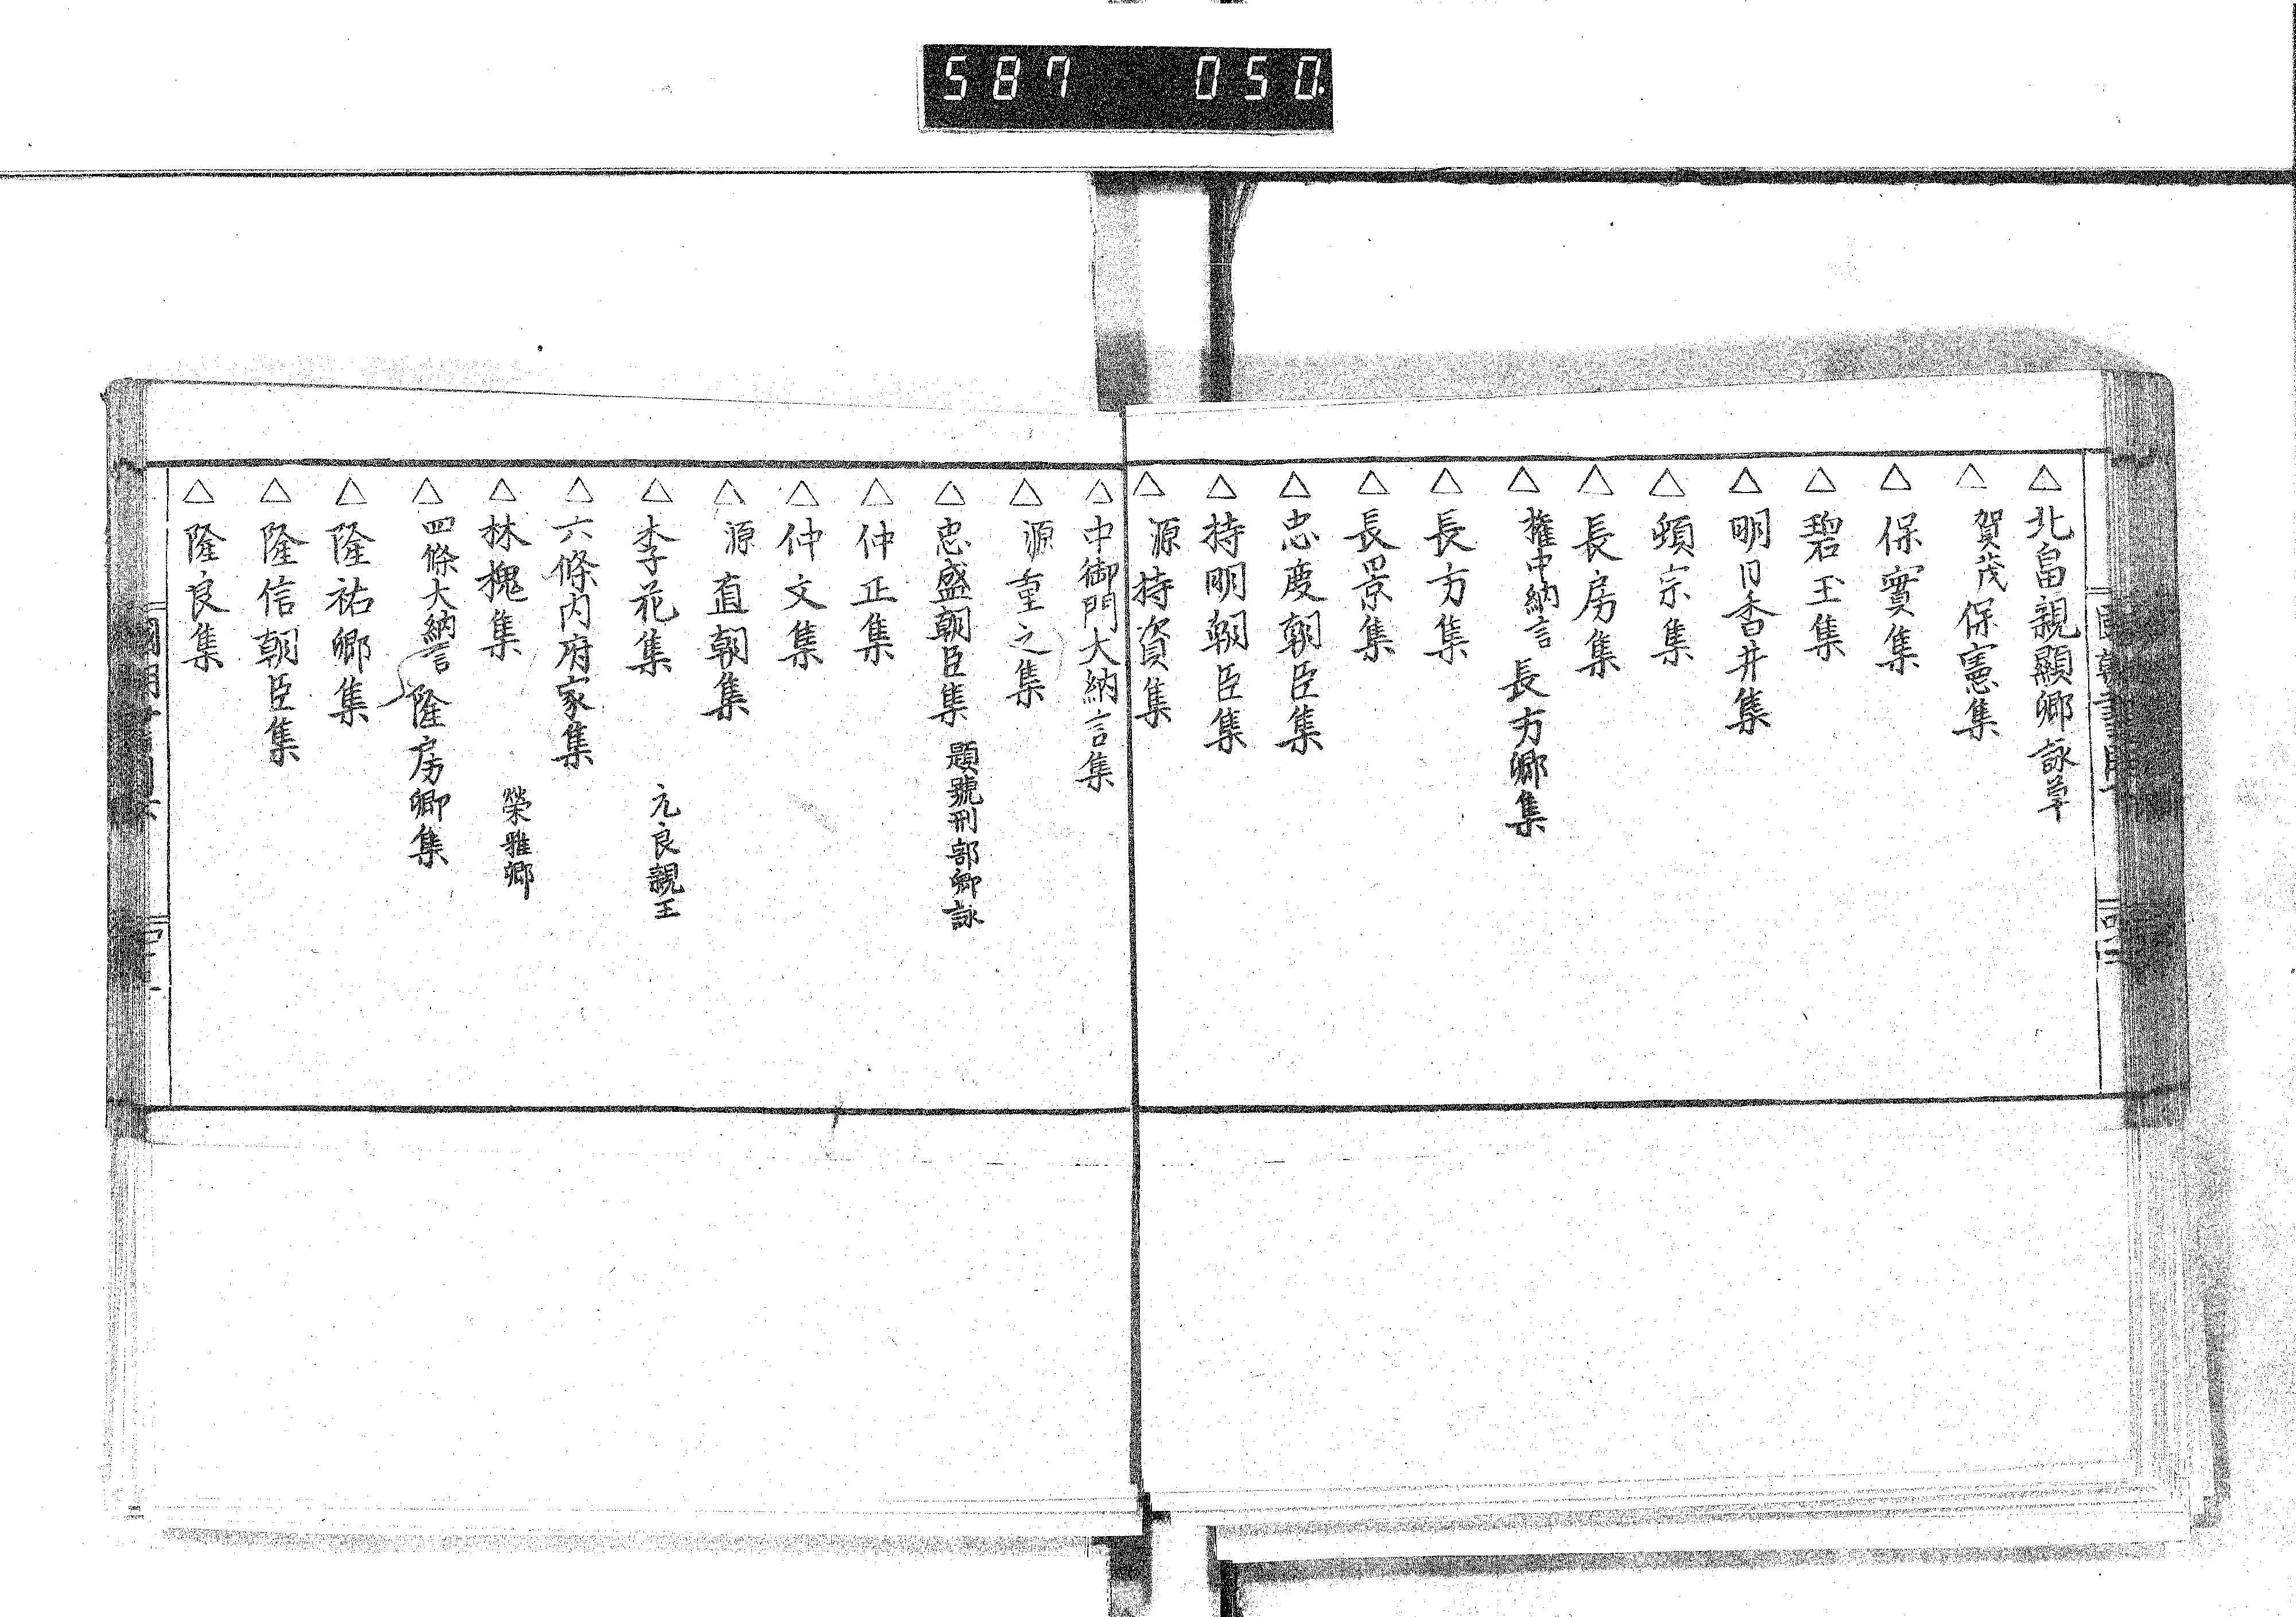 587 050
△北畠親顯卿詠草
△賀茂保憲集
△保實集
△碧玉集
△明日香井集
△頌宗集
△長房集
△權中納言長方卿集
△長方集
△長景集
△忠慶朝臣集
△持明朝臣集
△源持資集
△中御門大納言集
△源重之集
△忠盛朝臣集 題號刑部卿詠
△仲正集
△仲文集
△源直朝集
△李花集 元良親王
△六條内府家集
△林槐集 榮雅卿
△四條大納言隆房卿集
△隆祐卿集
△隆信朝臣集
△隆良集